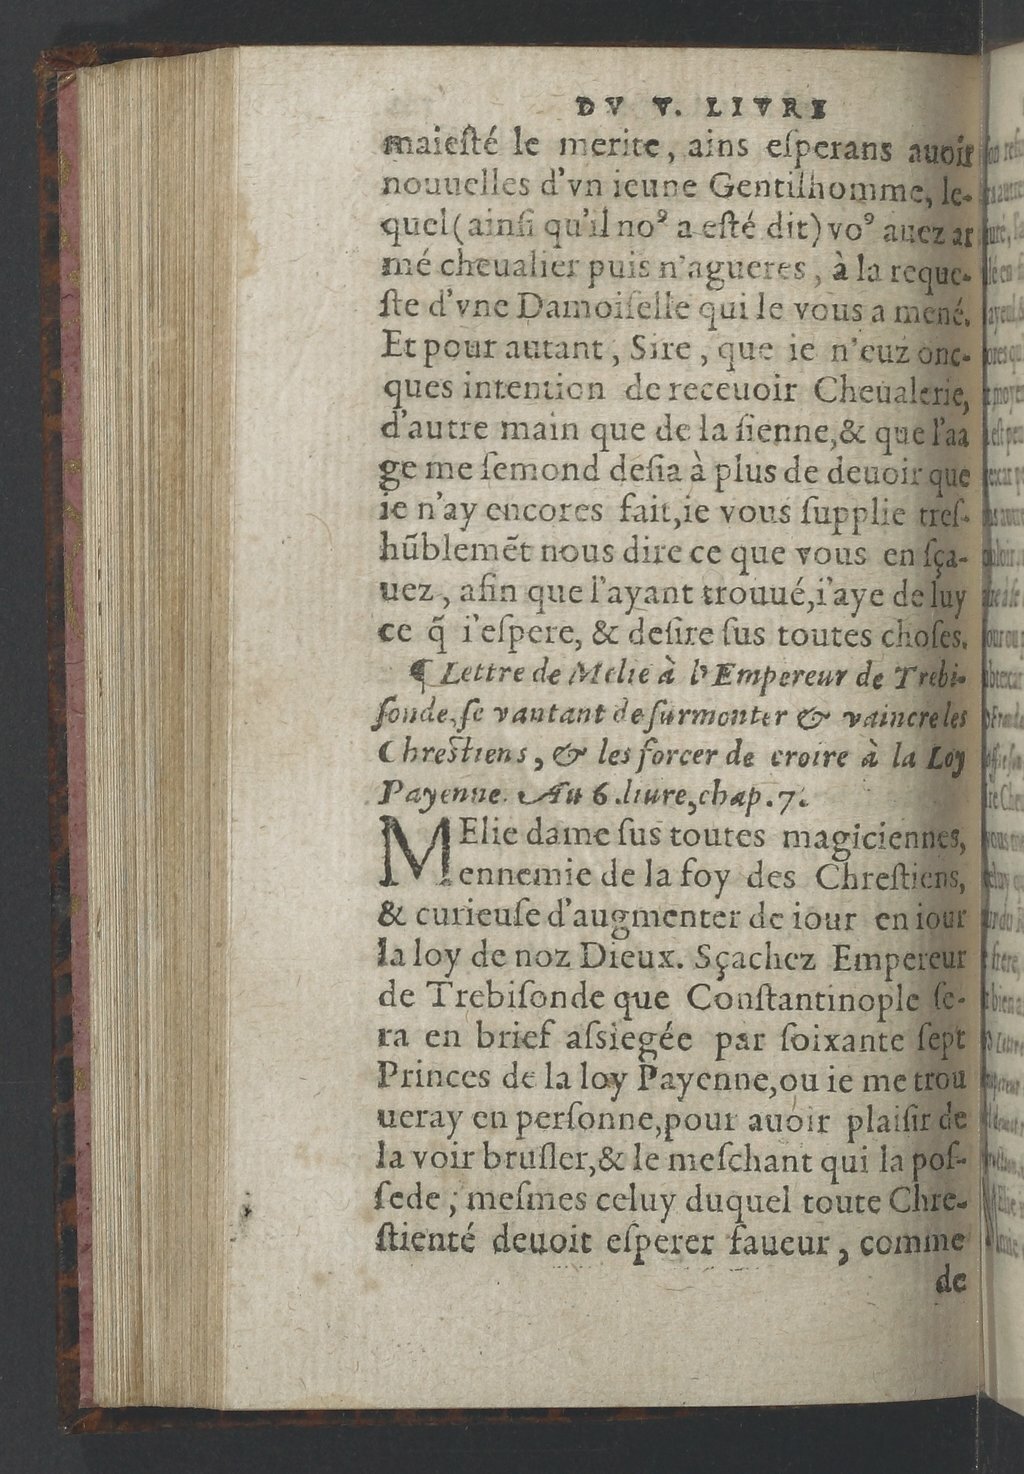 DV V. LIVRE
maieſté le merite, ains eſperans auoir
nouuelles d'vn ieune Gentilhomme, le-
quel (ainſi qu'il noꝰ a eſté dit) voꝰ auez ar
mé cheualier puis n'agueres, à la reque-
ſte d'vne Damoiſelle qui le vous a mené.
Et pour autant, Sire, que ie n'euz onc-
ques intention de receuoir Cheualerie,
d'autre main que de la ſienne, & que l'aa
ge me ſemond deſia à plus de deuoir que
ie n'ay encores fait, ie vous ſupplie treſ-
hũblemẽt nous dire ce que vous en ſça-
uez, afin que l'ayant trouué, i'aye de luy
ce q̃ i'eſpere, & deſire ſus toutes choſes.
¶ Lettre de Melie à l'Empereur de Trebi-
ſonde, ſe vantant de ſurmonter & vaincre les
Chreſtiens, & les forcer de croire à la Loy
Payenne. Au 6. liure, chap. 7.
MElie dame ſus toutes magiciennes,
ennemie de la foy des Chreſtiens,
& curieuſe d'augmenter de iour en iour
la loy de noz Dieux. Sçachez Empereur
de Trebiſonde que Conſtantinople ſe-
ra en brief aſsiegée par ſoixante ſept
Princes de la loy Payenne, ou ie me trou
ueray en perſonne, pour auoir plaiſir de
la voir bruſler, & le meſchant qui la poſ-
ſede; meſmes celuy duquel toute Chre-
ſtienté deuoit eſperer faueur, comme
de